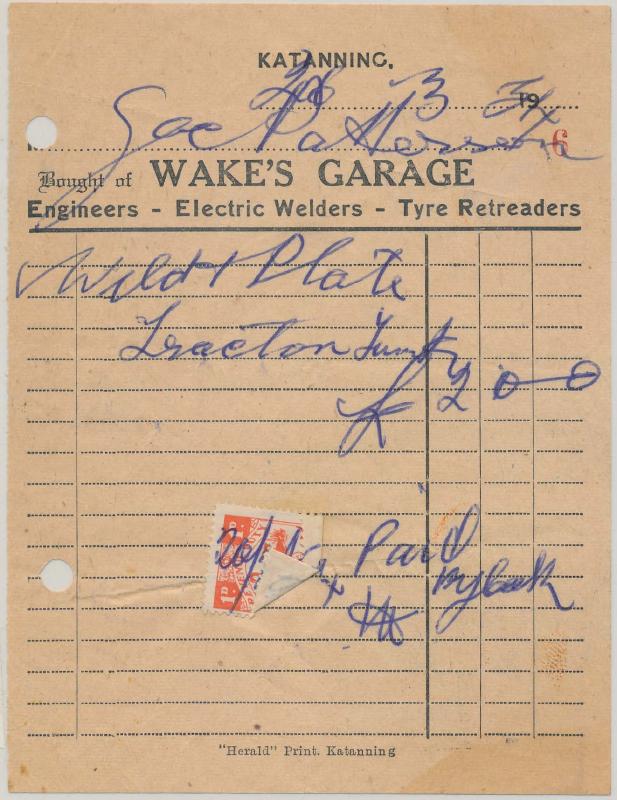 KATANNING.
26 3 1954
Joe Patterson 6
Bought of WAKE'S GARAGE
Engineers - Electric Welders - Tyre Retreaders
Weld & Plate
Tractor
£ 2 0 0
1D
Paid
"Herald" Print. Katanning